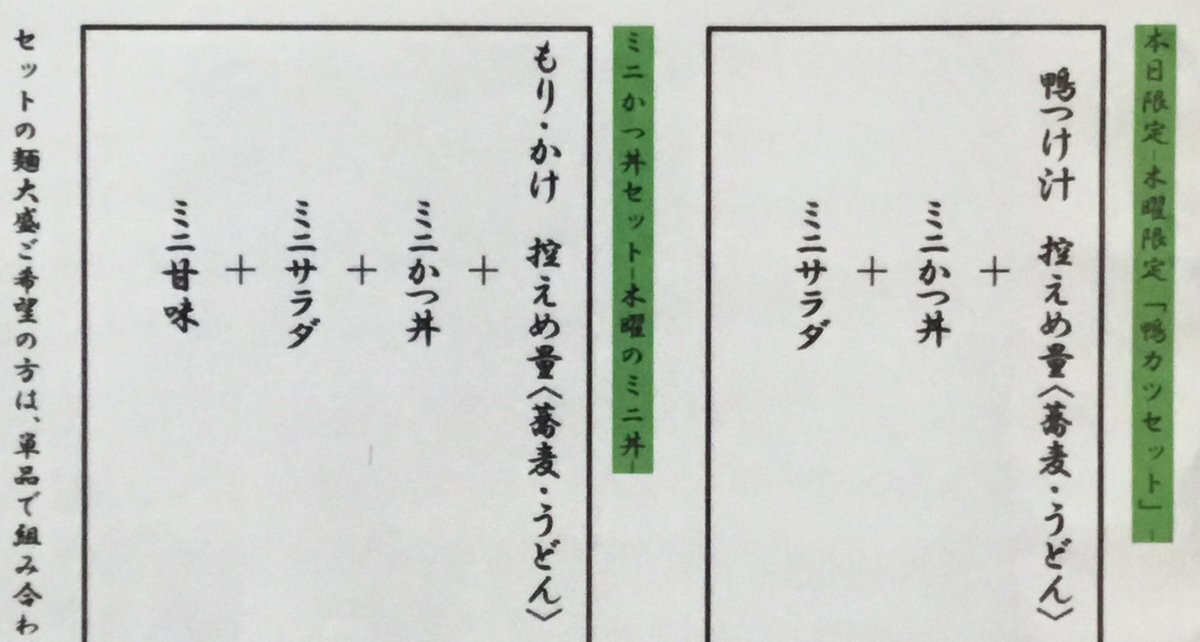 本日限定-木曜限定「鴨カツセット」-
鴨つけ汁 控えめ量〈蕎麦・うどん〉
+
ミニかつ丼
+
ミニサラダ
ミニかつ丼セット-木曜のミニ丼-
もり・かけ 控えめ量〈蕎麦・うどん〉
+
ミニかつ丼
+
ミニサラダ
+
ミニ甘味
セットの麺大盛ご希望の方は、単品で組み合わ